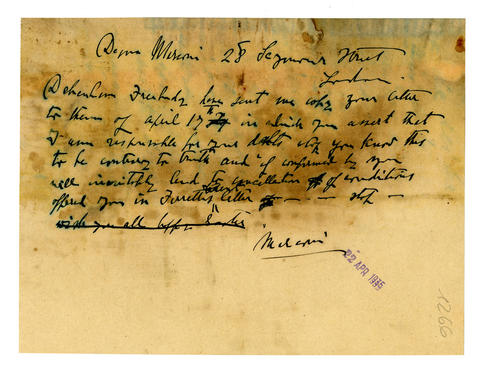 Degna Marconi 28 Seymour Street
London
Debenham Freebody have sent me copy your letter
to them of April 17th in which you assert that
I am responsible for your debts stop you know this
to be contrary to truth and if confirmed by you
will inevitably lead to cancellation of conditions
offered you in Ferretti's letter — — stop —
wish you all happy Easter
Marconi
22 APR 1935
1266